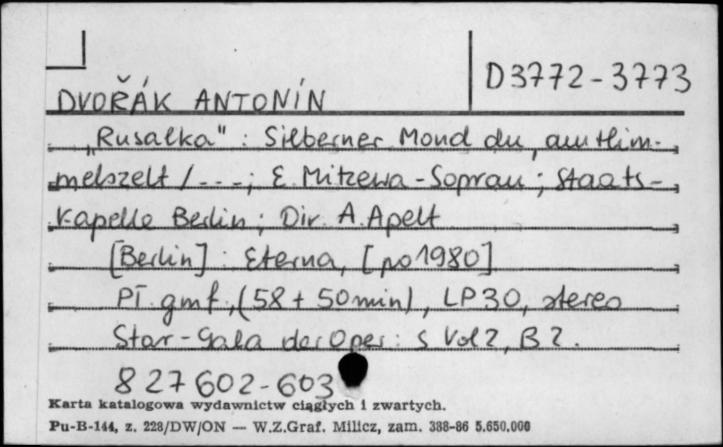 D3772-3773
DVOŘÁK ANTONÍN
„Rusałka" : Silberner Mond du, am Him-
melszelt /---; E. Mitzewa-Sopran ; Staats-
kapelle Berlin ; Dir. A. Apelt
[Berlin] : Eterna, [po 1980]
Pł. gmf., (58 + 50 min), LP30, stereo
Star-Gala der Oper : s Vol 2, B 2.
827602-603
Karta katalogowa wydawnictw ciągłych i zwartych.
Pu-B-144, z. 228/DW/ON — W.Z.Graf. Milicz, zam. 388-86 5.650.000